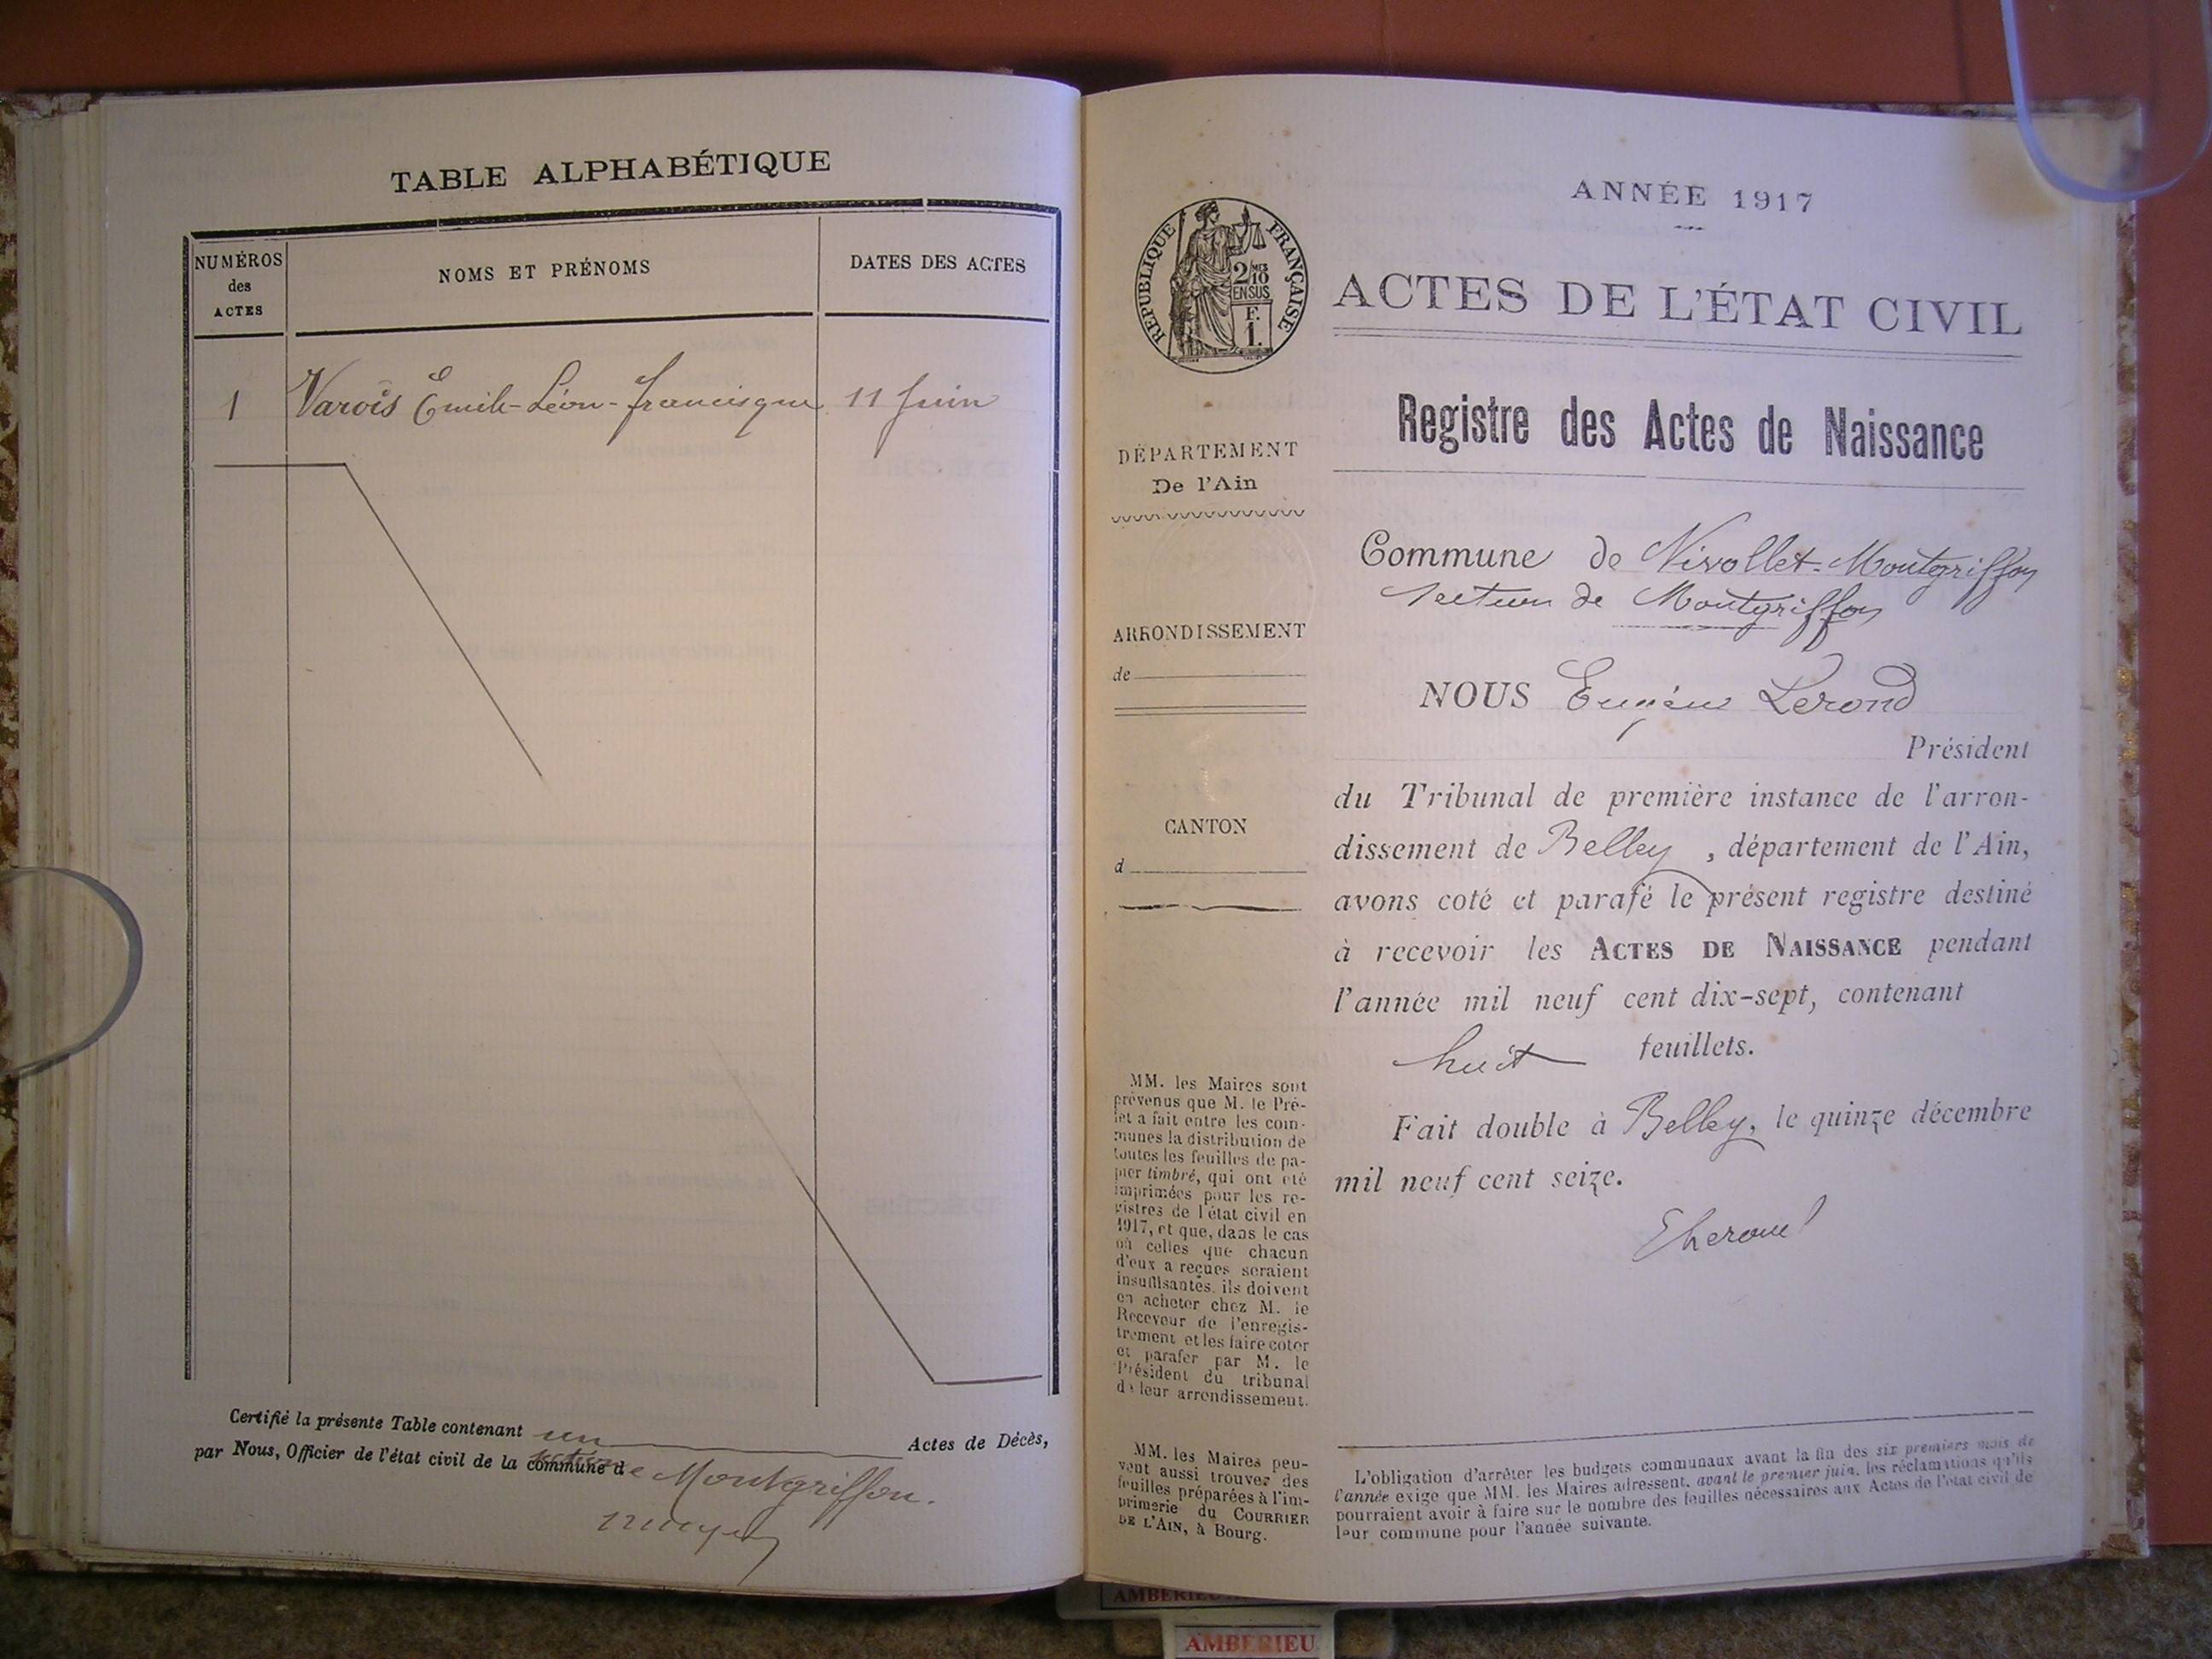 TABLE ALPHABÉTIQUE
NUMÉROS
des
ACTES
NOMS ET PRÉNOMS
DATES DES ACTES
1 Varois Emile-Léon-Francisque 11 Juin
Certifié la présente Table contenant un Actes de Décès,
par Nous, Officier de l'état civil de la commune de Montgriffon.
ANNÉE 1917
RÉPUBLIQUE FRANÇAISE
2/10
MES
EN SUS
F.
1.
ACTES DE L'ÉTAT CIVIL
Registre des Actes de Naissance
DÉPARTEMENT
De l'Ain
ARRONDISSEMENT
de
CANTON
d
Commune de Nivollet-Montgriffon
section de Montgriffon
NOUS Eugène Lerond
Président
du Tribunal de première instance de l'arron-
dissement de Belley, département de l'Ain,
avons coté et parafé le présent registre destiné
à recevoir les ACTES DE NAISSANCE pendant
l'année mil neuf cent dix-sept, contenant
huit feuillets.
Fait double à Belley, le quinze décembre
mil neuf cent seize.
MM. les Maires sont
prévenus que M. le Pré-
fet a fait entre les com-
munes la distribution de
toutes les feuilles de pa-
pier timbré, qui ont été
imprimées pour les re-
gistres de l'état civil en
1917, et que, dans le cas
où celles que chacun
d'eux a reçues seraient
insuffisantes, ils doivent
en acheter chez M. le
Receveur de l'enregis-
trement et les faire coter
et parafer par M. le
Président du tribunal
de leur arrondissement.
MM. les Maires peu-
vent aussi trouver des
feuilles préparées à l'im-
primerie du COURRIER
DE L'AIN, à Bourg.
L'obligation d'arrêter les budgets communaux avant la fin des six premiers mois de
l'année exige que MM. les Maires adressent, avant le premier juin, les réclamations qu'ils
pourraient avoir à faire sur le nombre des feuilles nécessaires aux Actes de l'état civil de
leur commune pour l'année suivante.
AMBERIEU
AMBERIEU